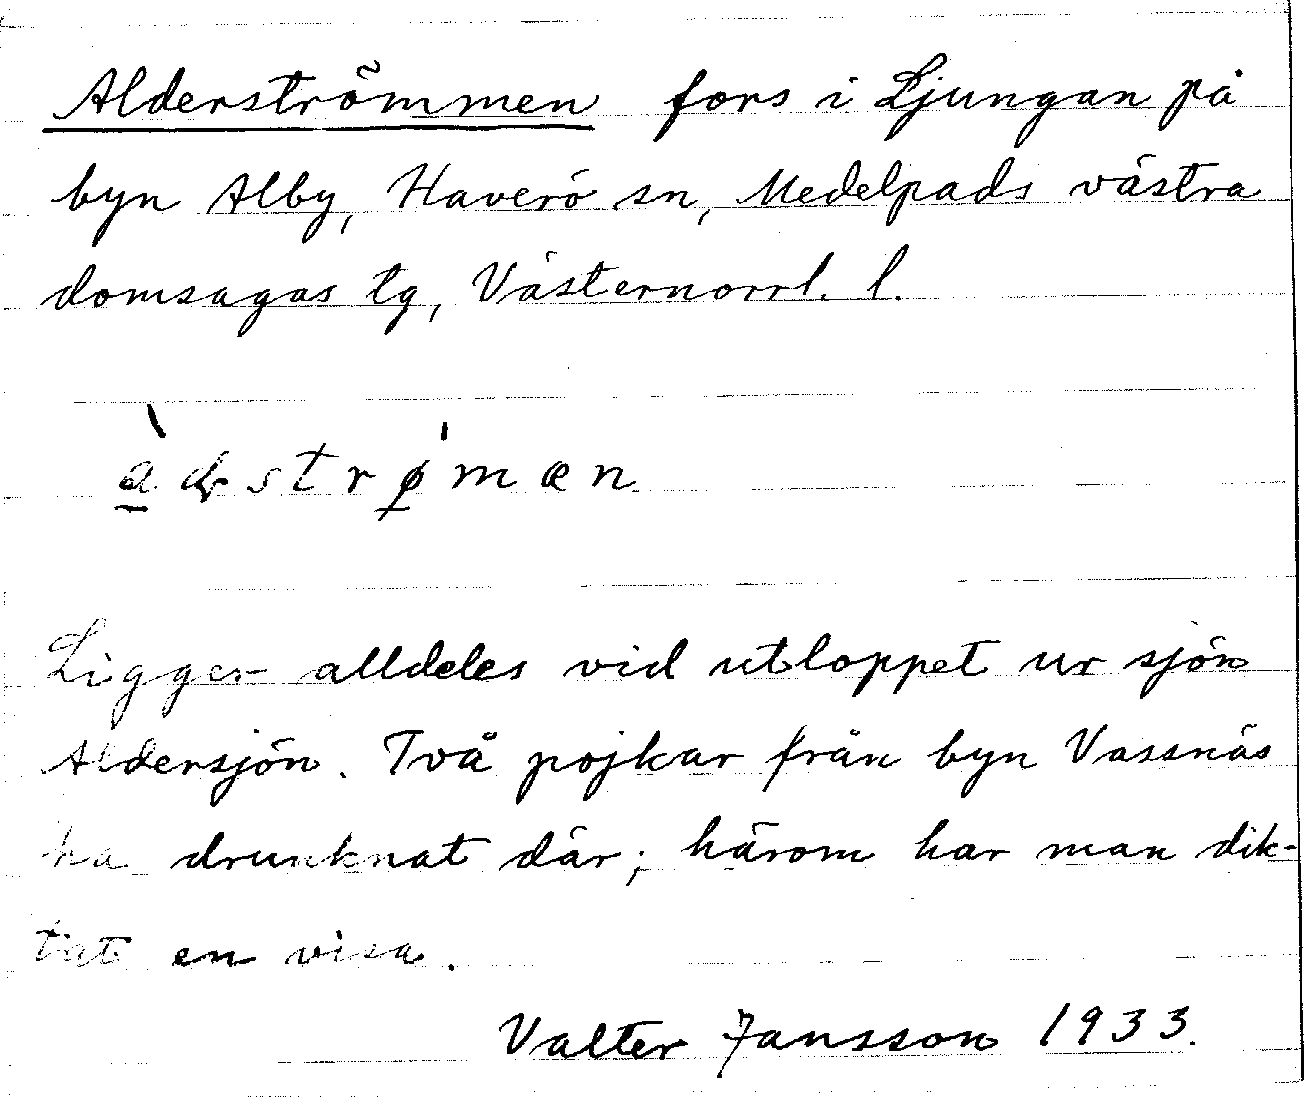 Alderströmmen fors i Ljungan på
byn Alby, Haverö sn, Medelpads västra
domsagas tg, Västernorrl. l.
Ligger alldeles vid utloppet ur sjön
Aldersjön. Två pojkar från byn Vassnäs
ha drunknat där; härom har man dik-
tat en visa.
Valter Jansson 1933.